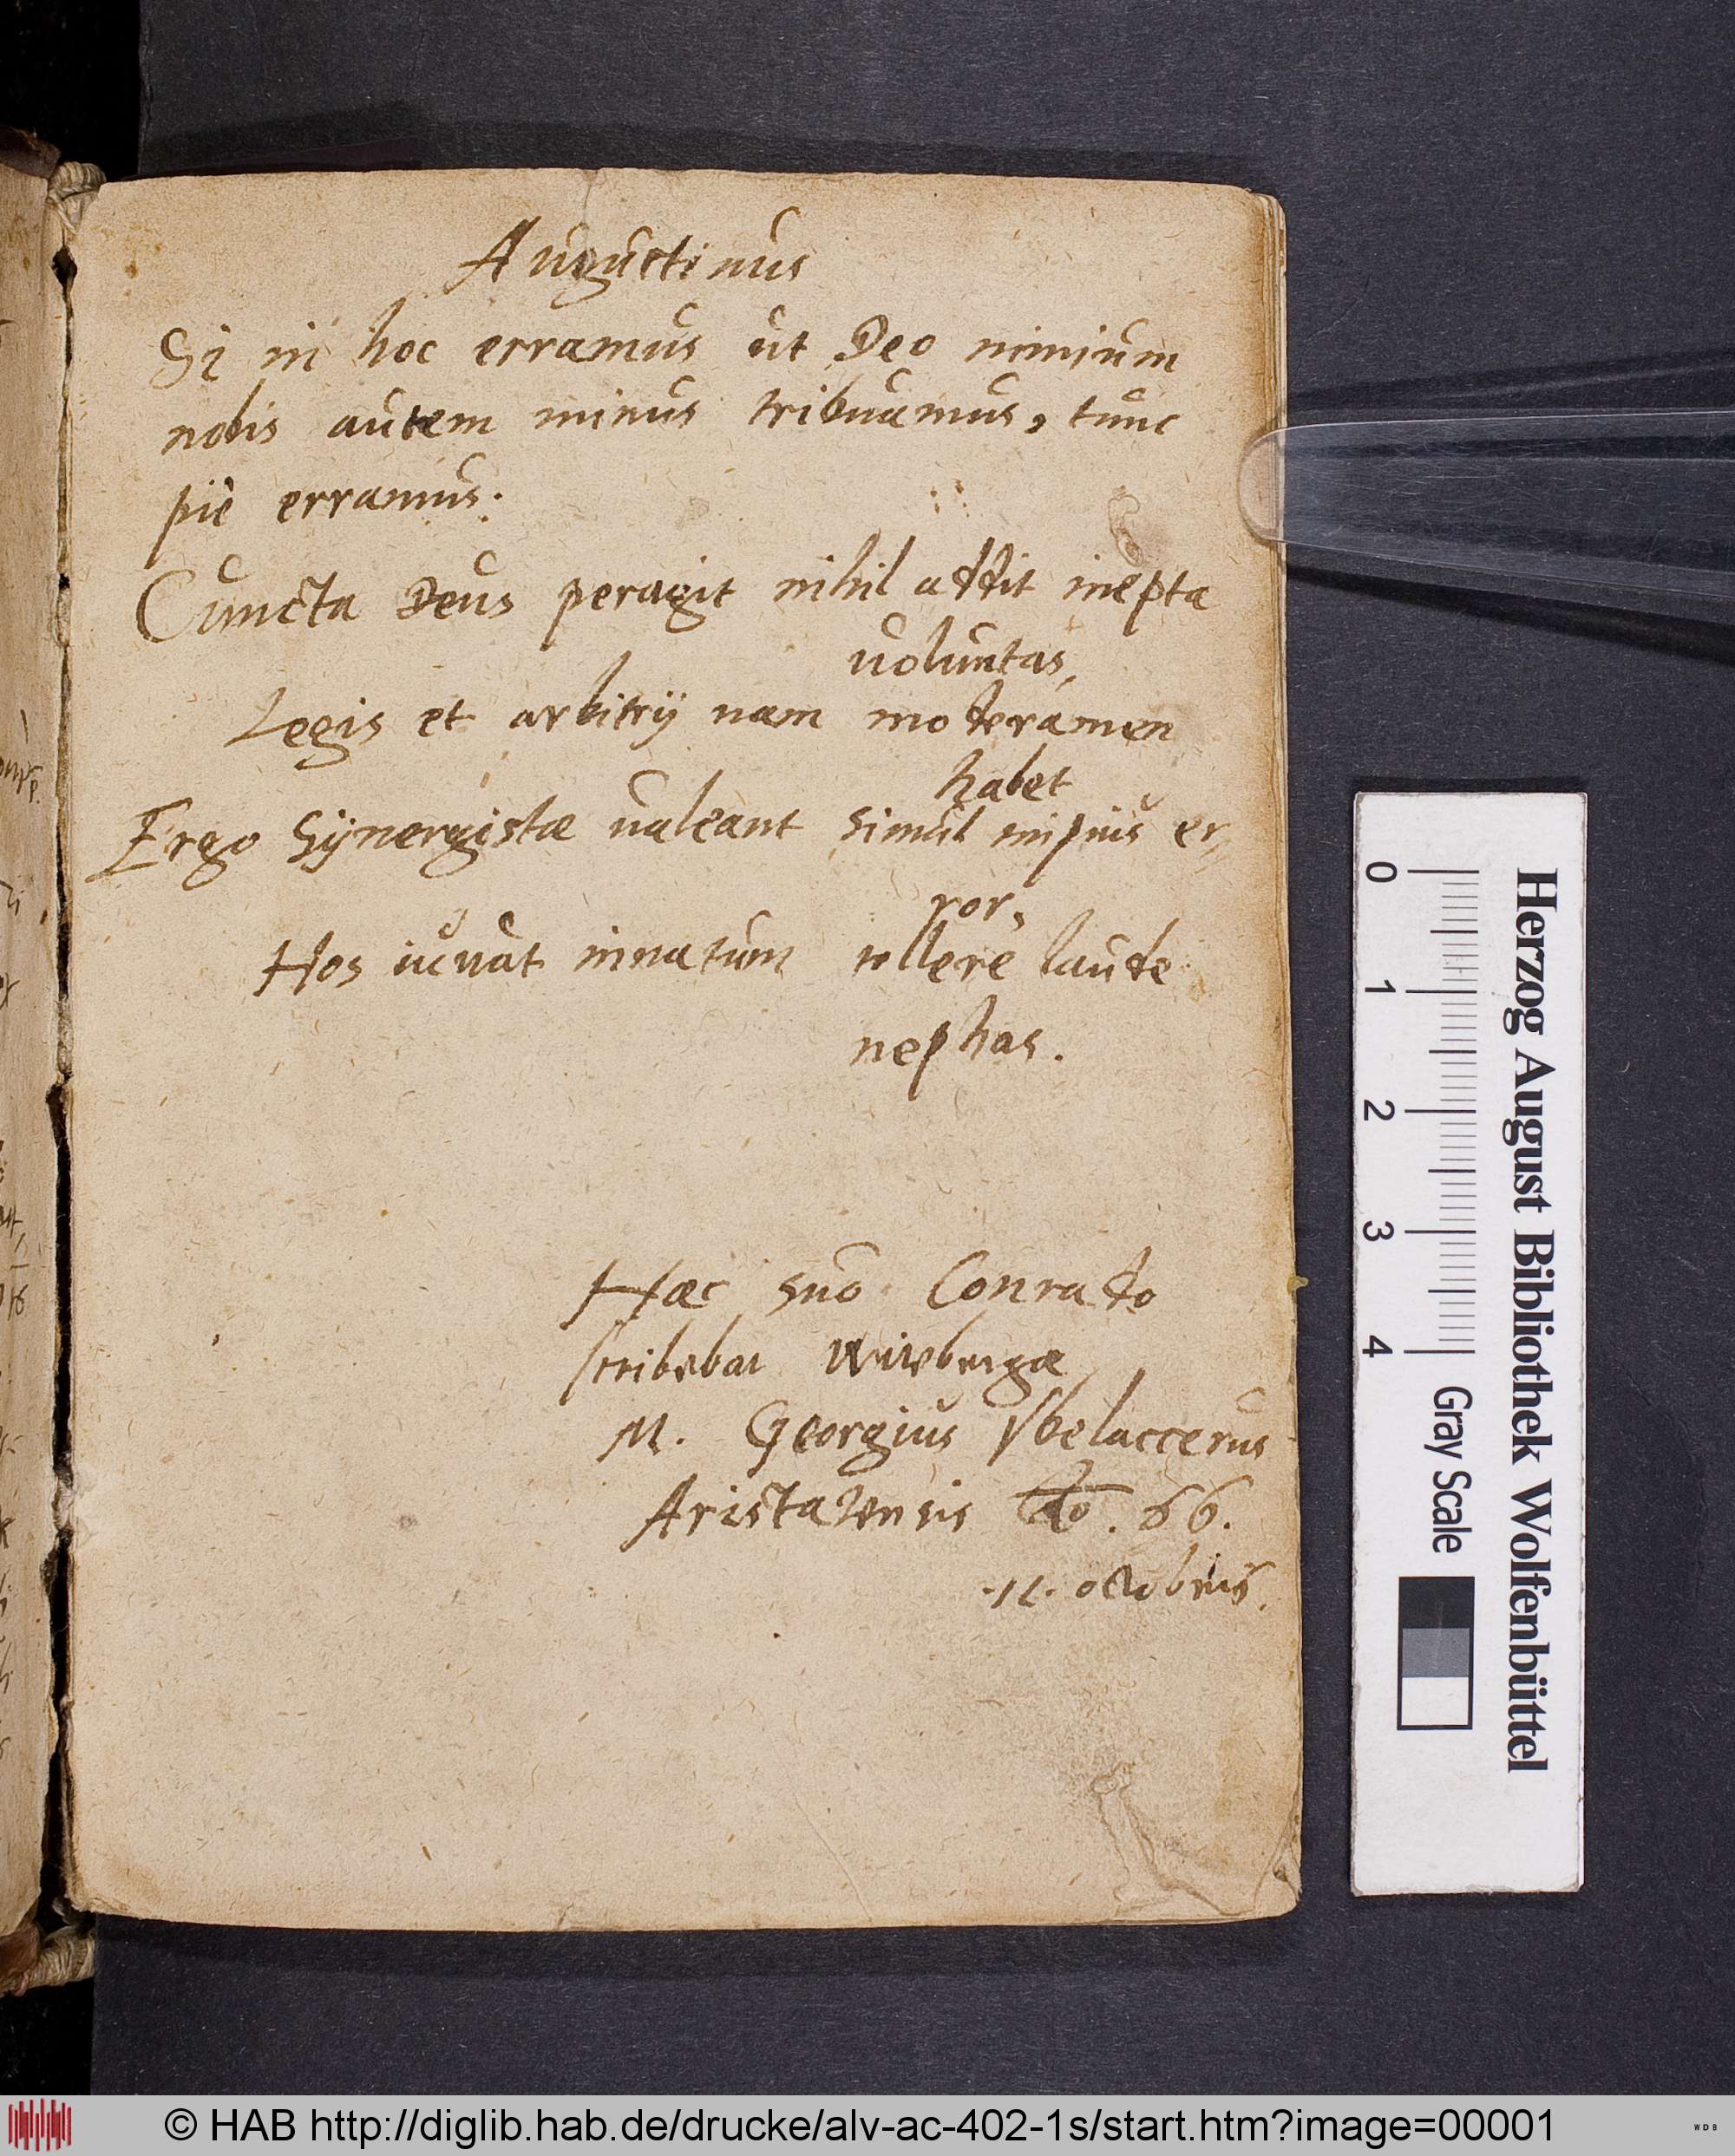 Augustinus
Si in hoc erramus ut Deo nimium
nobis autem minus tribuamus, tunc
piè erramus.
Cuncta Deus peragit nihil addit inepta
voluntas,
Legis et arbitrij nam moderamen
habet
Ergo Sÿnergistæ valeant simul impius er,,
ror,
Hos iuvat innatum tollere laude
nephas.
Hæc suo Conrado
scribebat Witebergæ
M. Georgius
66.
octobris.
Herzog August Bibliothek Wolfenbüttel
0 1 2 3 4 Gray Scale
© HAB http://diglib.hab.de/drucke/alv-ac-402-1s/start.htm?image=00001
WDB